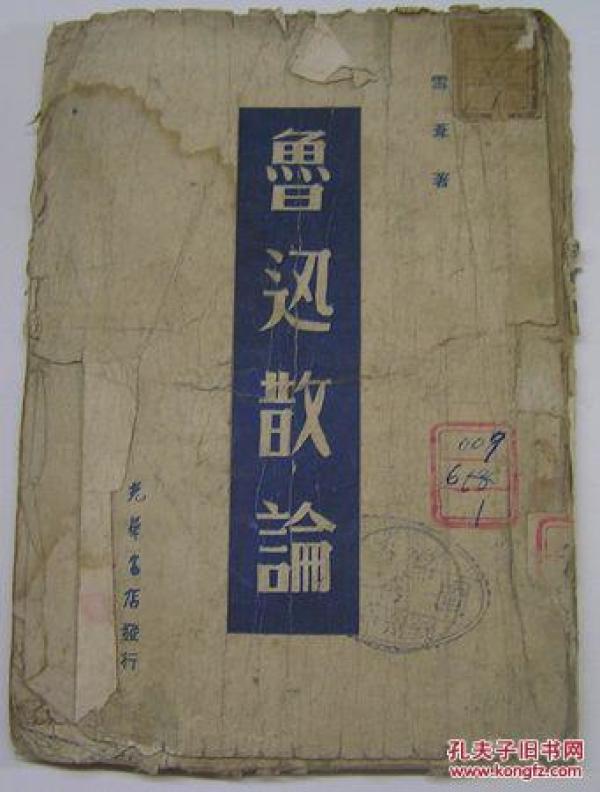 雪葦著
魯迅散論
光華書店發行
009
658
1
孔夫子旧书网
www.kongfz.com